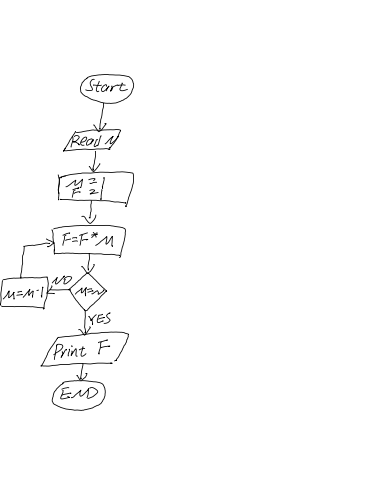 Start
Read M
M =
F = 1
F=F*M
NO
M=M-1
M=N
YES
Print F
END